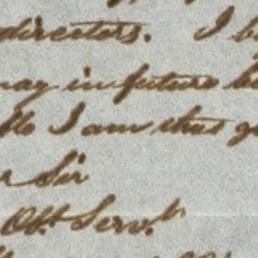 directors. I b
may in future be
I am thus g
Sir
Obt. Servt.